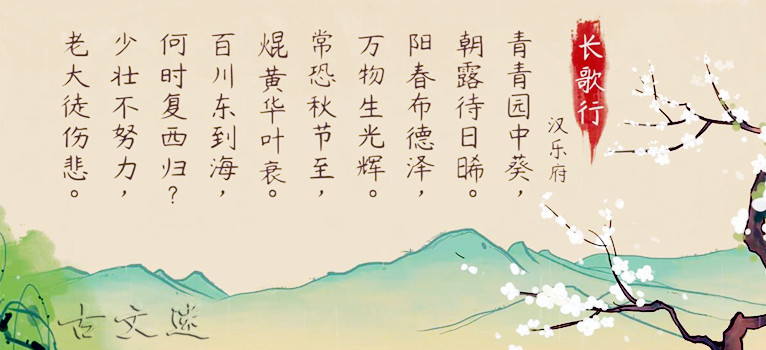 长歌行
汉乐府
青青园中葵，
朝露待日晞。
阳春布德泽，
万物生光辉。
常恐秋节至，
焜黄华叶衰。
百川东到海，
何时复西归？
少壮不努力，
老大徒伤悲。
古文迷